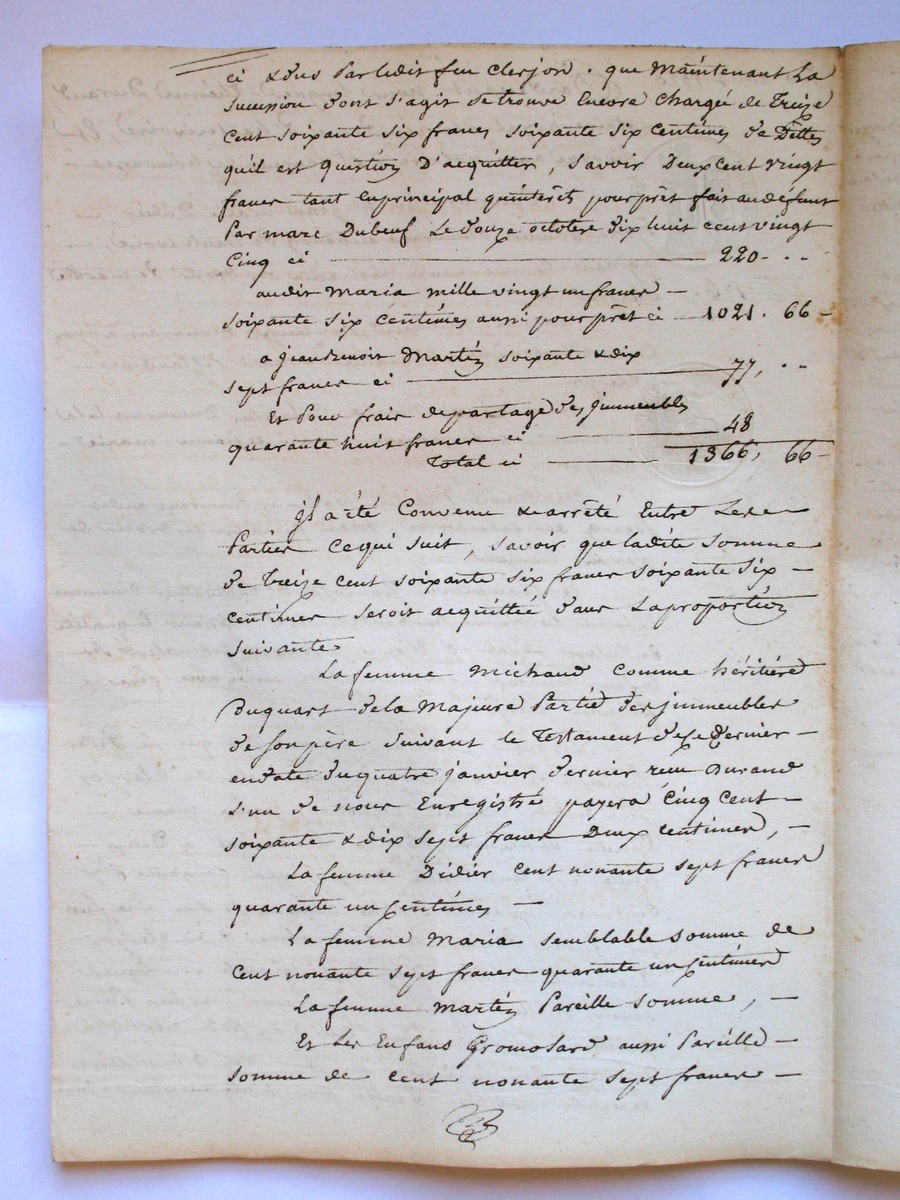 ci dus par ledit feu Clerjon. que Maintenant La
Succession dont s'agit se trouve Encore Chargée de Treize
Cent soixante six francs soixante six centimes de Dettes
quil est Question D'acquitter, savoir Deux cent vingt
francs tant En principal qu'intérêts pour prêt fait au défunt
Par marc Dubeuf Le douze octobre dix huit cent vingt
Cinq ci 220 - . .
audit Maria mille vingt un francs -
soixante six centimes aussi pour prêt ci 1021 . 66 -
a jean Benoit Martin soixante & dix
sept francs ci 77, . .
Et Pour frais de partage des jmmeubles
quarante huit francs ci 48
Total ci 1366, 66 -
jl a été Convenu & arrêté Entre Les
Parties Ce qui suit, savoir que ladite somme
de Treize cent soixante six francs soixante six -
centimes seroit acquittée dans La proportion
suivante
La femme Michaud comme héritière
Du quart de la Majeure Partie des jmmeubles
de son père suivant le Testament de ce Dernier -
en date du quatre janvier dernier reçu Durand
l'un de nous Enregistré payera Cinq Cent -
soixante & dix sept francs Deux Centimes, -
La femme Didier cent nonante sept francs
quarante un Centimes -
La femme Maria semblable somme de
Cent nonante sept francs quarante un Centimes
La femme Martin Pareille somme, -
Et Les Enfans Gromolard aussi Pareille -
somme de cent nonante sept francs -